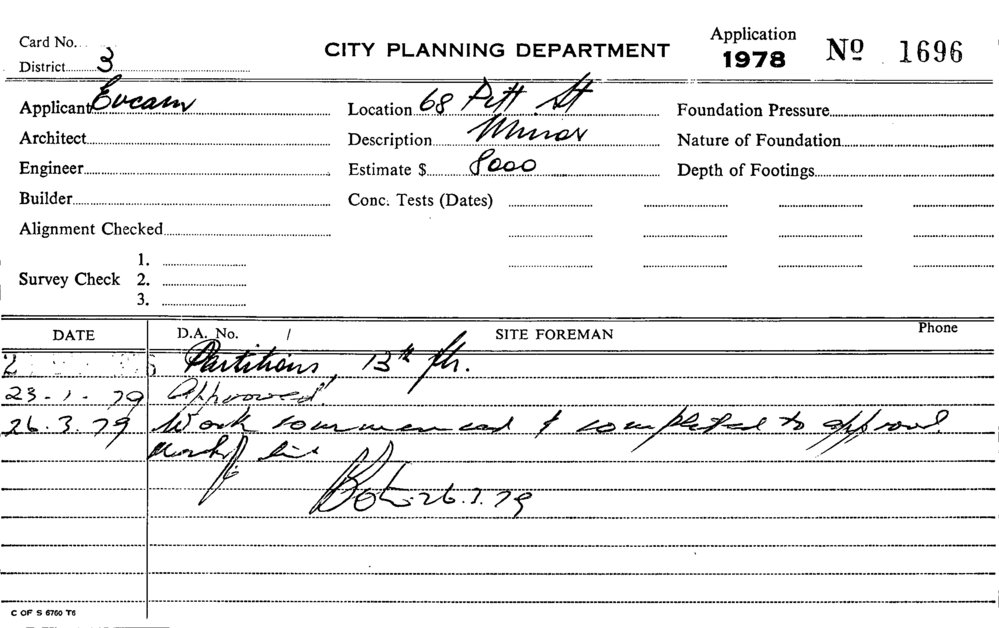 Card No.
District 3
CITY PLANNING DEPARTMENT
Application
1978
Nº 1696
Applicant
Location 68 Pitt St
Foundation Pressure
Architect
Description Minor
Nature of Foundation
Engineer
Estimate $ 8000
Depth of Footings
Builder
Conc. Tests (Dates)
Alignment Checked
Survey Check
1.
2.
3.
DATE
D.A. No. /
SITE FOREMAN
Phone
Partitions, 13th flr.
23.1.79 Approved
26.3.79 Work commenced & completed to approval
26.3.79
C OF S 6760 T6